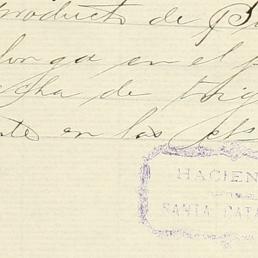 producto de
longa en el p
cha de trig
te en los
HACIEN
SANTA CATA